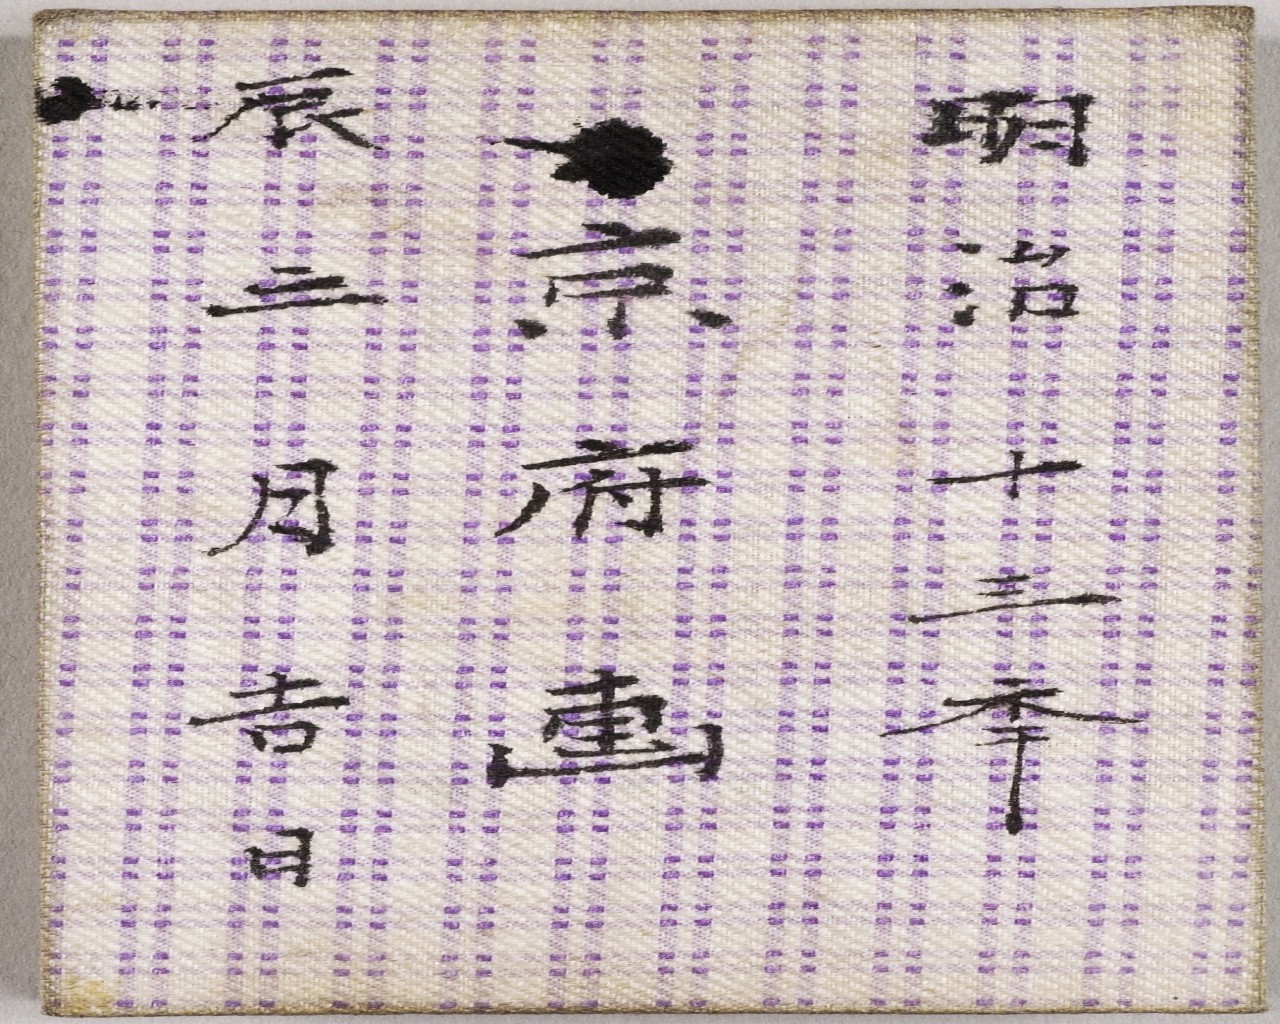 明治十三年
京府画
辰三月吉日